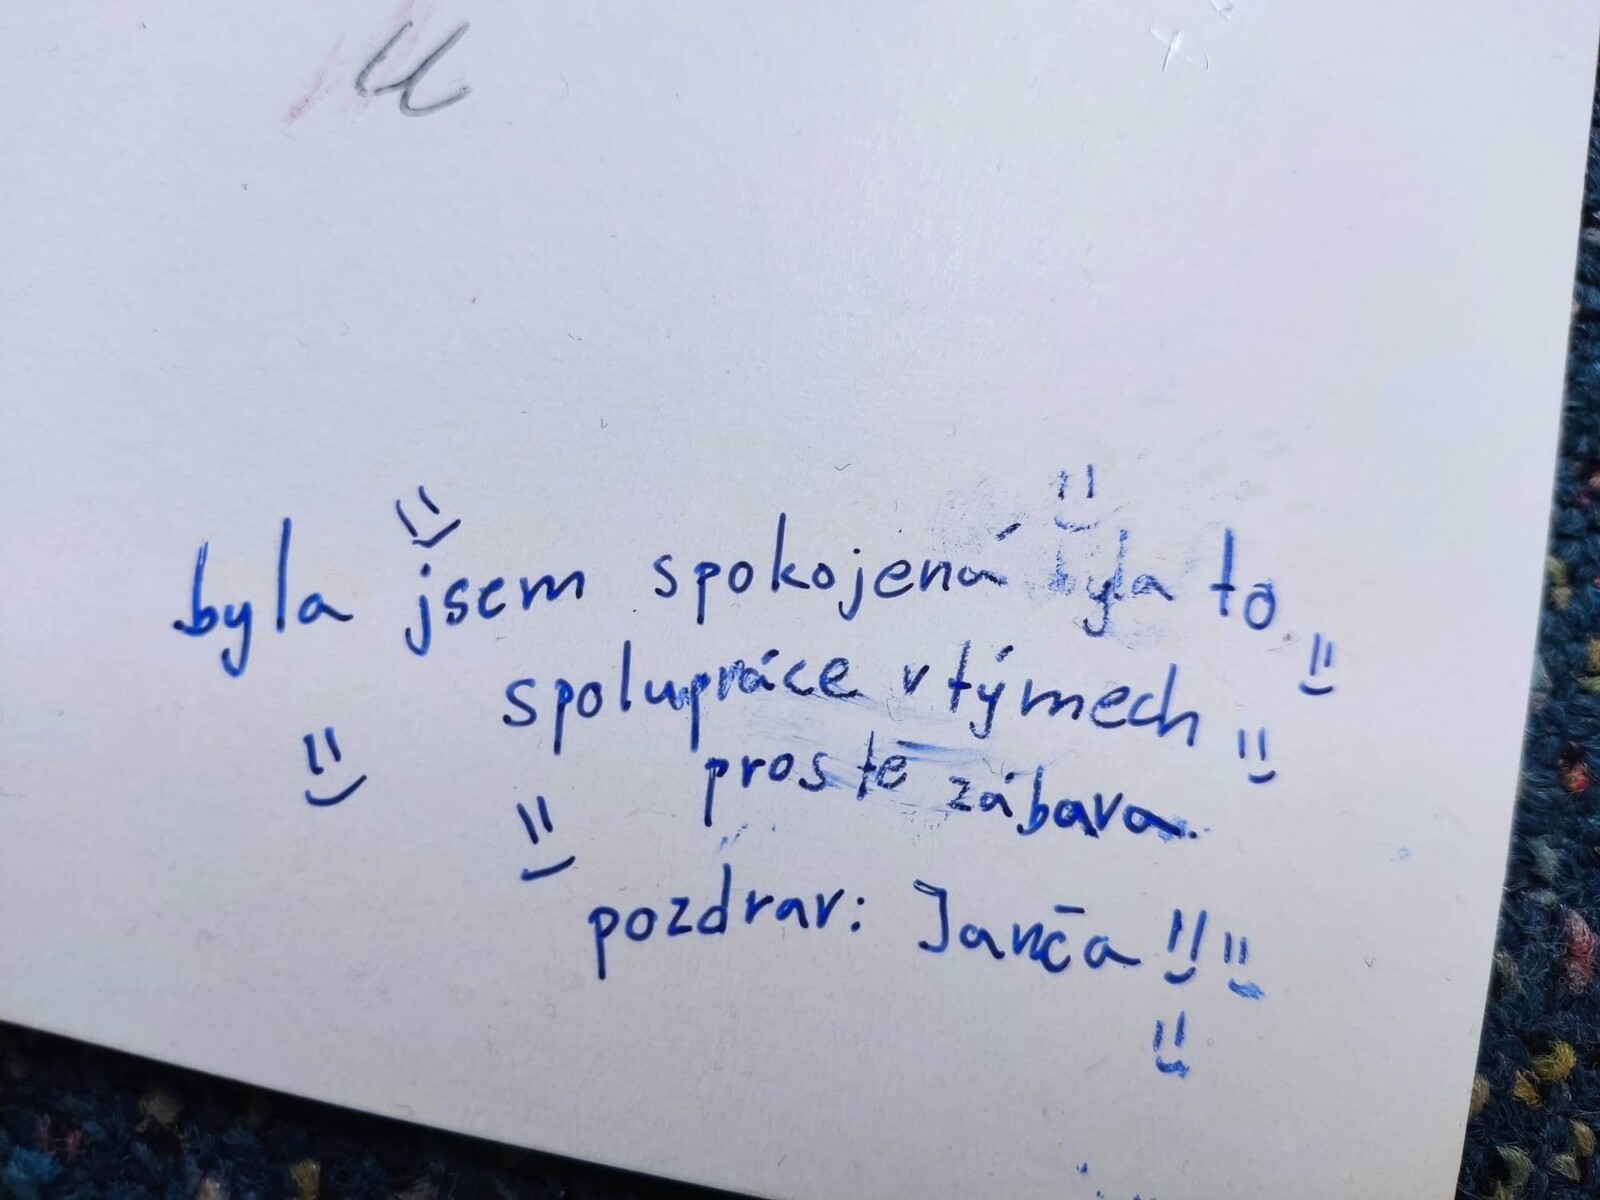 byla jsem spokojená byla to
spolupráce v týmech
prostě zábava.
pozdrav: Janča